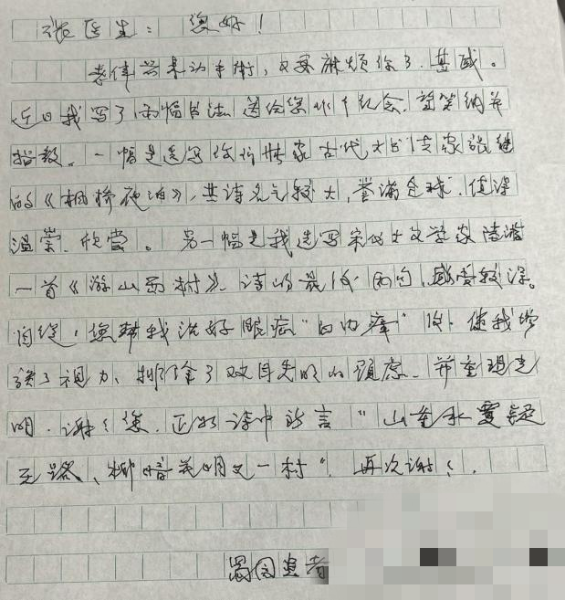 张医生：您好！
老伴前来动手术，又要麻烦你了，甚感。
近日我写了两幅书法送给您作个纪念，望笑纳并
指教。一幅是选写你们张家古代大诗家张继
的《枫桥夜泊》，其诗名气较大，誉满全球，值得
温赏、欣赏。另一幅是我选写宋代大文学家陆游
一首《游山西村》，诗的最后两句，感受较深。
自从，您帮我治好眼疾"白内障"后，使我增
强了视力，排除了双目失明的顾虑，并重现光
明，谢谢您，正如诗中所言"山重水复疑
无路，柳暗花明又一村"，再次谢谢。
患者